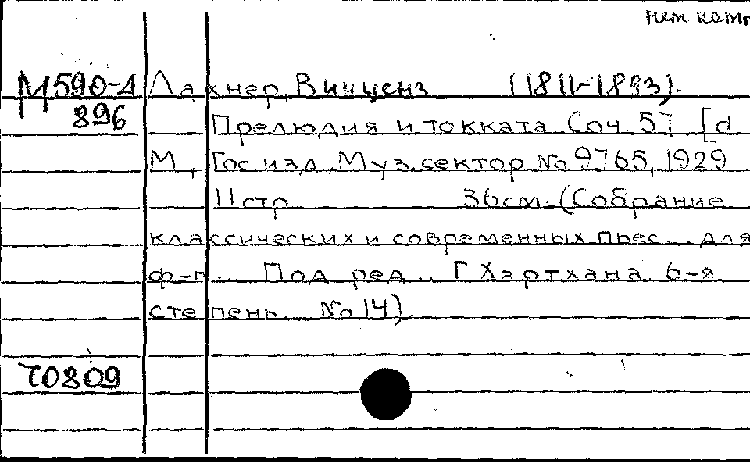 нет комп
М590-4 Лахнер, Винценз (1811-1893).
896 Прелюдия и токката Соч. 57 [d
М., Гос. изд. Муз. сектор №9765, 1929
11 стр. 36см. (Собрание
классических и современных пьес... для
ф-п... Под ред... Г. Хэртхана. 6-я
степень. №14)
70809